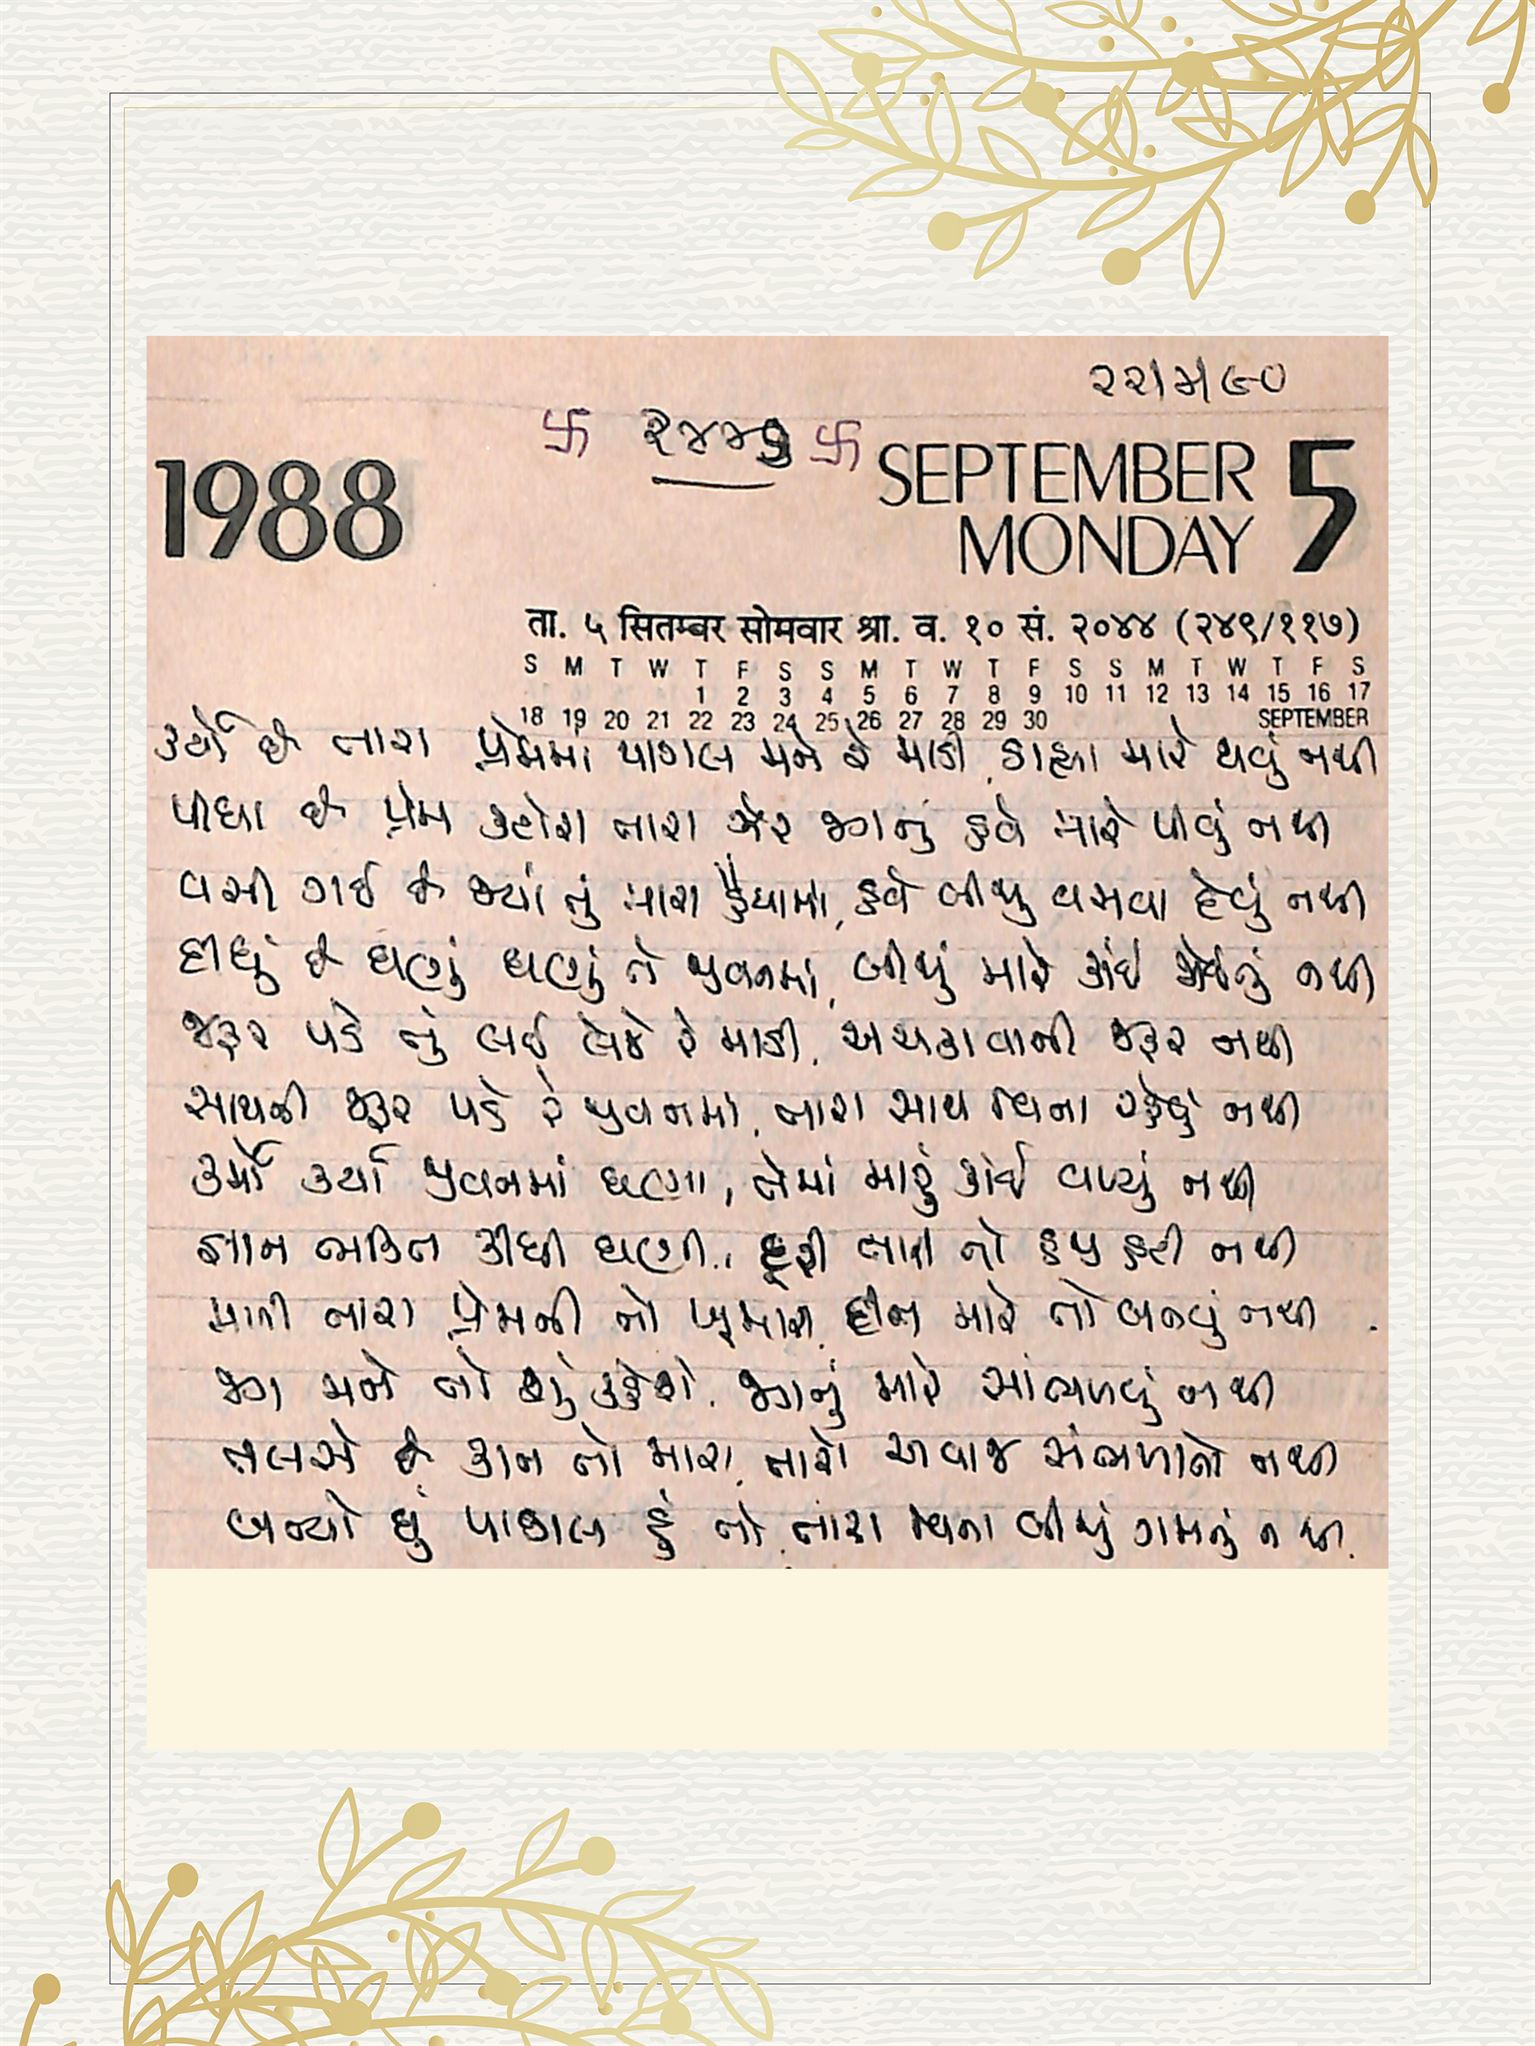 ૨૨।૫।૯૦
卐 ૨૪૪૭ 卐
1988
SEPTEMBER 5
MONDAY
ता. ५ सितम्बर सोमवार श्रा. व. १० सं. २०४४ (२४९/११७)
S M T W T F S S M T W T F S S M T W T F S
1 2 3 4 5 6 7 8 9 10 11 12 13 14 15 16 17
18 19 20 21 22 23 24 25 26 27 28 29 30 SEPTEMBER
કર્યો છે તારા પ્રેમમાં પાગલ મને રે માડી, ડાહ્યા મારે થવું નથી
પીધા છે પ્રેમ કટોરા તારા ઝેર જગનું હવે મારે પીવું નથી
વસી ગઈ છે જ્યાં તું મારા હૈયામાં, હવે બીજુ વસવા દેવું નથી
દીધું છે ઘણું ઘણું તે જીવનમાં, બીજું મારે કાંઈ જોઈતું નથી
જરૂર પડે તું લઈ લેજે રે માડી, અચકાવાની જરૂર નથી
સાથની જરૂર પડે રે જીવનમાં, તારા સાથ વિના રહેવું નથી
કર્મો કર્યા જીવનમાં ઘણા, તેમાં મારું કાંઈ વળ્યું નથી
જ્ઞાન ભક્તિ કીધી ઘણી, દૂરી તારી તો હજુ હટી નથી
મળી તારા પ્રેમની તો ખુમારી, દીન મારે તો બનવું નથી
જગ મને તો શું કહેશે, જગનું મારે સાંભળવું નથી
તલસે છે કાન તો મારા, તારો અવાજ સંભળાતો નથી
બન્યો છું પાગલ હું તો, તારા વિના બીજું ગમતું નથી.